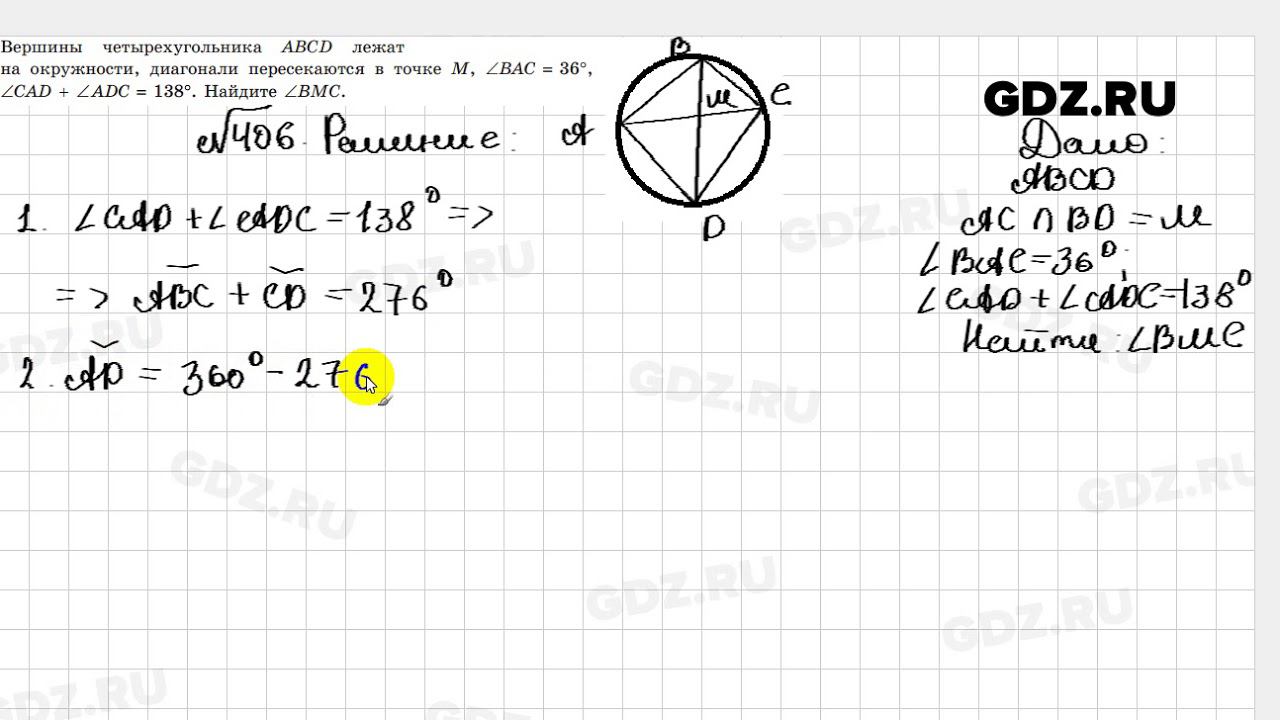 Вершины четырехугольника ABCD лежат
на окружности, диагонали пересекаются в точке M, ∠BAC = 36°,
∠CAD + ∠ADC = 138°. Найдите ∠BMC.
GDZ.RU
№406. Решение:
B
M
C
A
D
Дано:
ABCD
AC ∩ BD = M
∠BAC = 36°
∠CAD + ∠ADC = 138°
Найти: ∠BMC
1. ∠CAD + ∠ADC = 138° =>
=> ABC + CD = 276°
2. AD = 360° - 276
GDZ.RU
GDZ.RU
GDZ.RU
GDZ.RU
GDZ.RU
GDZ.RU
GDZ.RU
GDZ.RU
GDZ.RU
GDZ.RU
GDZ.RU